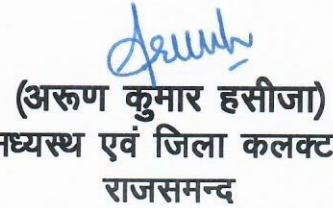 (अरूण कुमार हसीजा)
मध्यस्थ एवं जिला कलक्ट
राजसमन्द